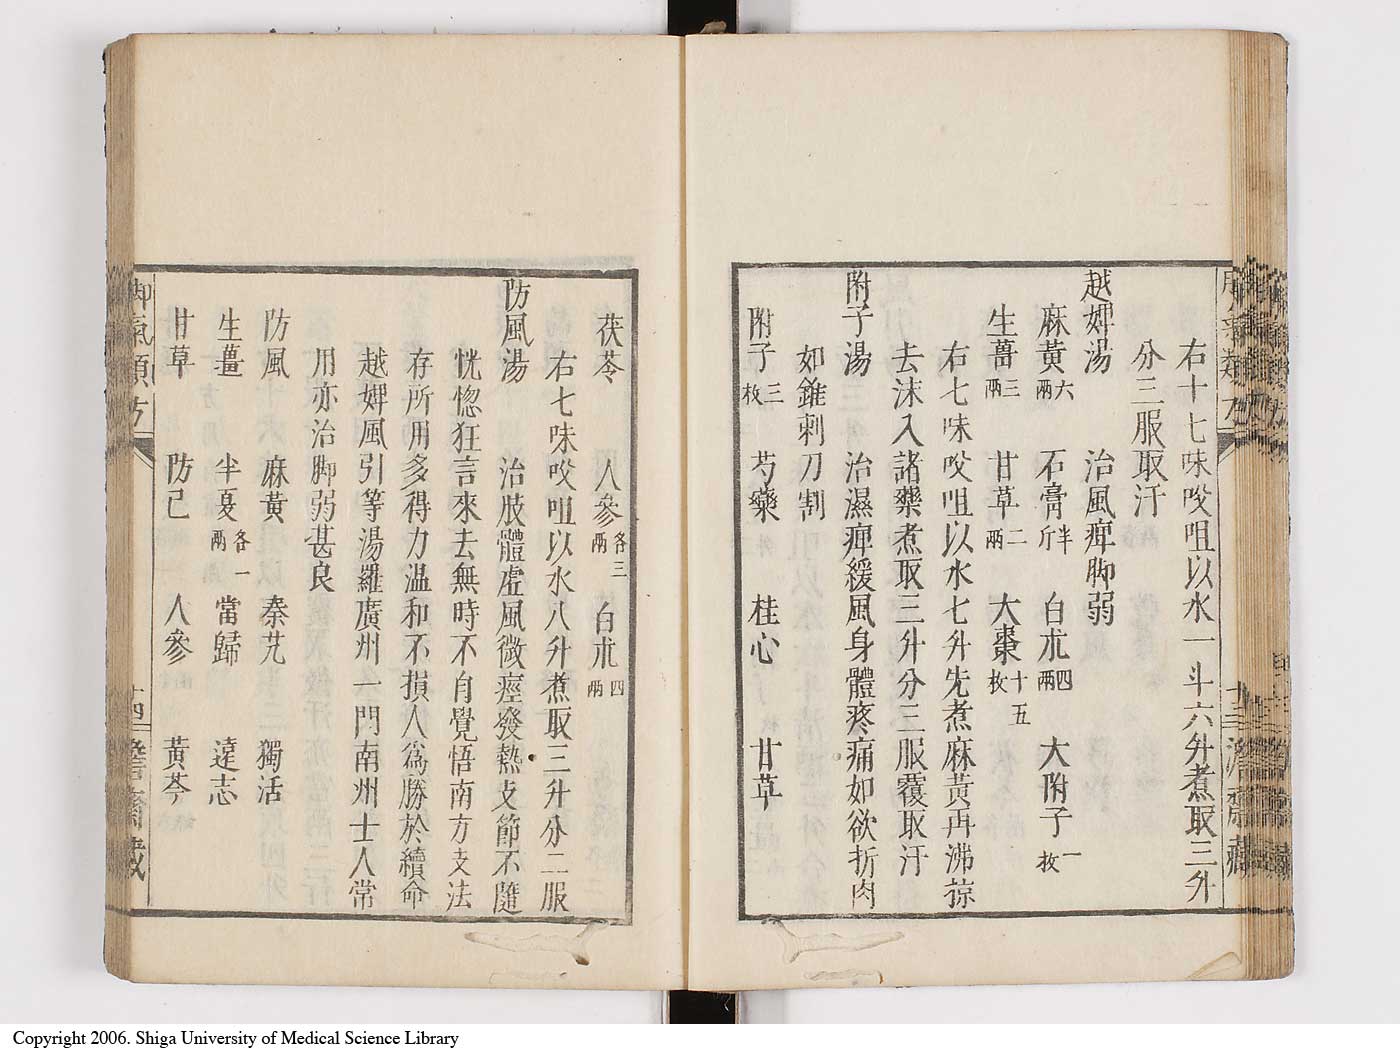 右十七味㕮咀以水一斗六升煮取三升
分三服取汗
越婢湯 治風痺脚弱
麻黃六兩 石膏半斤 白朮四兩 大附子一枚
生薑三兩 甘草二兩 大棗十五枚
右七味㕮咀以水七升先煮麻黃再沸掠
去沫入諸藥煮取三升分三服覆取汗
附子湯 治濕痺緩風身體疼痛如欲折肉
如錐刺刀割
附子三枚 芍藥 桂心 甘草
茯苓 人參各三兩 白朮四兩
右七味㕮咀以水八升煮取三升分二服
防風湯 治肢體虛風微痙發熱支節不隨
恍惚狂言來去無時不自覺悟南方支法
存所用多得力温和不損人爲勝於續命
越婢風引等湯羅廣州一門南州士人常
用亦治脚弱甚良
防風 麻黃 秦艽 獨活
生薑 半夏各一兩 當歸 遠志
甘草 防己 人參 黃芩
脚氣類方 十四 詹齋藏
Copyright 2006. Shiga University of Medical Science Library